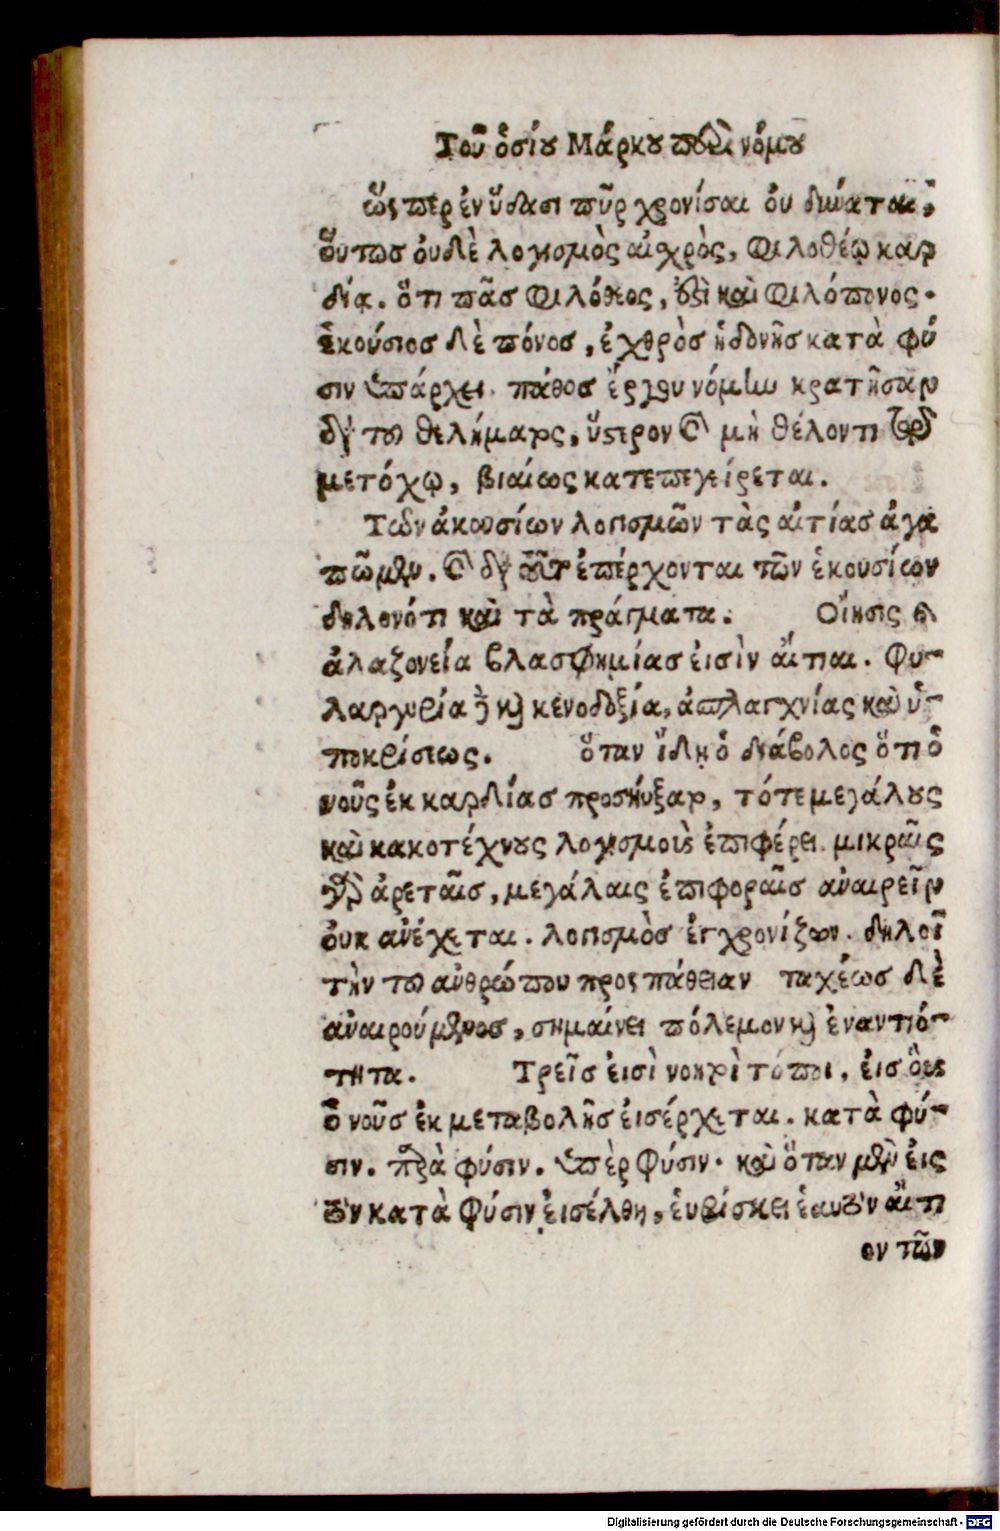 Τοῦ ὁσίου Μάρκου περὶ νόμου
ὥς περ ἐν ὕδασι πῦρ χρονίσαι ὀυ δύναται,
ὅυτως ὀυδὲ λογισμὸς αἰχρὸς, φιλοθέῳ καρ
δίᾳ. ὅτι πᾶς φιλόθεος, ἐστὶ καὶ φιλόπονος.
ἑκούσιος δὲ πόνος, ἐχθρὸς ἡδονῆς κατὰ φύ
σιν ὑπάρχει. πάθος ἔργου νόμω κρατῆσαν
διὰ τοῦ θελήματος, ὕστερον καὶ μὴ θέλοντι τῷ
μετόχῳ, βιαίως κατεπεγείρεται.
Τῶν ἀκουσίων λογισμῶν τὰς αἰτίας ἀγα
πῶμεν. καὶ διὰ τοῦτ' ἐπέρχονται τῶν ἑκουσίων
δηλονότι καὶ τὰ πράγματα. Οἴησις καὶ
ἀλαζονεία βλασφημίας ἐισὶν αἴτιαι. Φυ-
λαργυρία δὲ καὶ κενοδοξία, ἀσπλαγχνίας καὶ ὑ-
ποκρίσεως. ὅταν ἴδῃ ὁ διάβολος ὅτι ὁ
νοῦς ἐκ καρδίας προσηύξατο, τότε μεγάλους
καὶ κακοτέχνους λογισμοὺς ἐπιφέρει. μικρᾶις
γὰρ ἀρεταῖς, μεγάλαις ἐπιφοραῖς ἀναιρεῖν
ὀυκ ἀνέχεται. λογισμὸς ἐγχρονίζων. δηλοῖ
τὴν τοῦ ἀνθρώπου προςπάθειαν ταχέως δὲ
ἀναιρούμενος, σημαίνει πόλεμον καὶ ἐναντιό-
τητα. Τρεῖς ἐισὶ νοητοὶ τόποι, ἐις ὅυς
ὁ νοῦς ἐκ μεταβολῆς ἐισέρχεται. κατὰ φύ-
σιν. παρὰ φύσιν. ὑπὲρ φύσιν. καὶ ὅταν μὲν ἐις
τὸν κατὰ φύσιν ἐισέλθῃ, ἑυρίσκει ἑαυτὸν αἴτι
ον τῶν
Digitalisierung gefördert durch die Deutsche Forschungsgemeinschaft - DFG